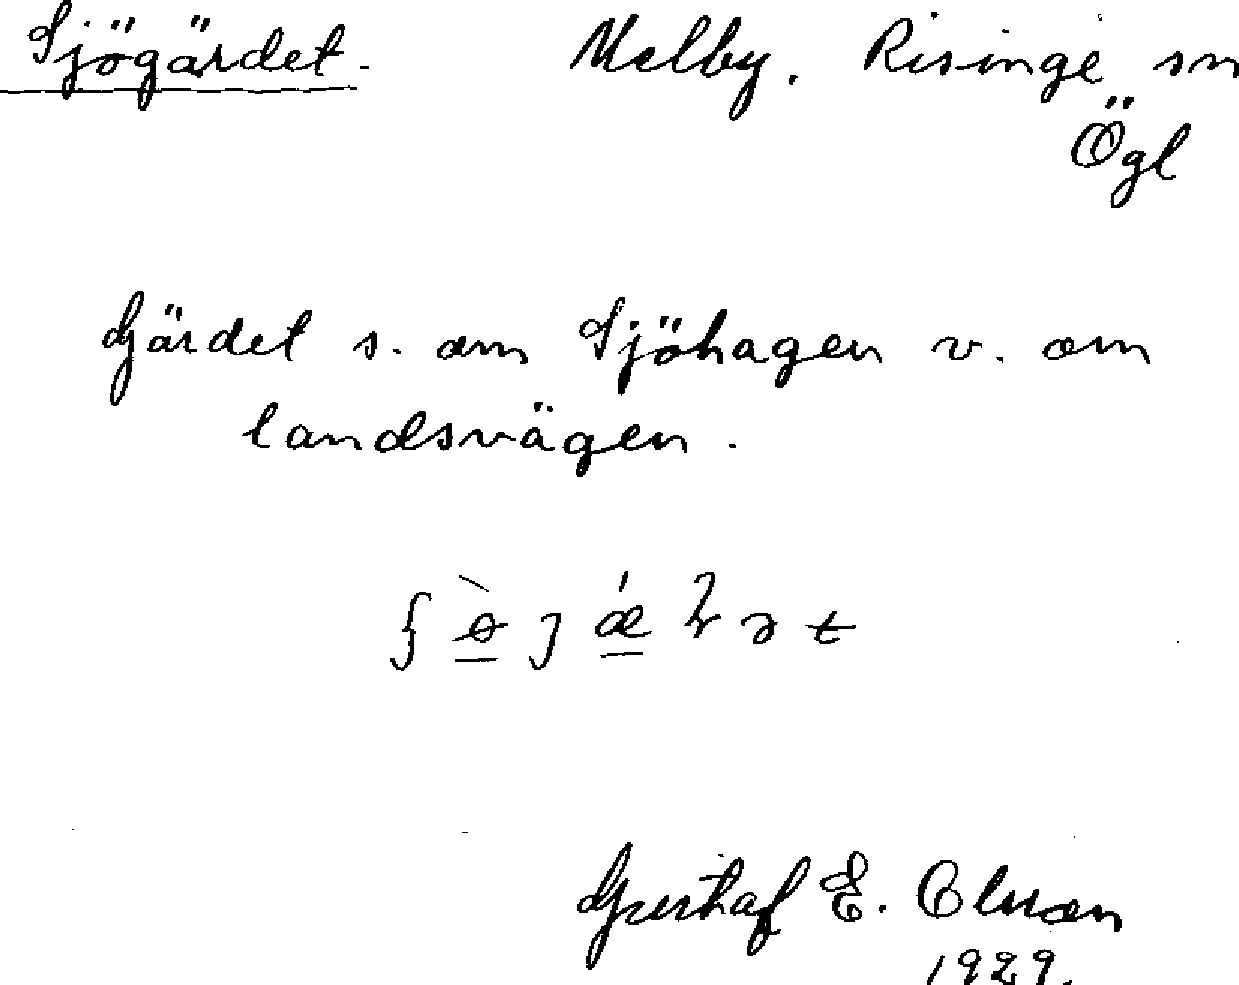 Sjögärdet. Melby. Risinge sn
Ögl
Gärdet s. om Sjöhagen v. om
landsvägen.
Gustaf E. Olson
1929.